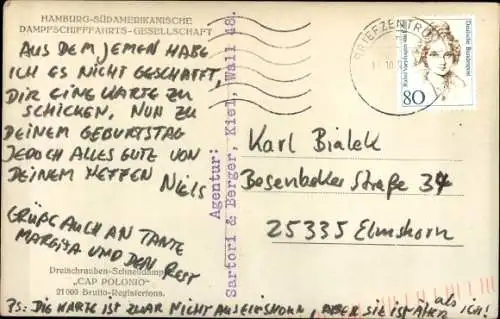 HAMBURG-SÜDAMERIKANISCHE
DAMPFSCHIFFFAHRTS-GESELLSCHAFT
AUS DEM JEMEN HABE
ICH ES NICHT GESCHAFFT,
DIR EINE KARTE ZU
SCHICKEN, NUN ZU
DEINEM GEBURTSTAG
JEDOCH ALLES GUTE VON
DEINEM NEFFEN
NIELS
GRÜßE AUCH AN TANTE
MARGITA UND DEN REST
Dreischrauben-Schnelldampfer
„CAP POLONIO"
21 000 Brutto-Registertons.
PS: DIE KARTE IST ZWAR NICHT AUS ELMSHORN ABER SIE IST ÄLTER als ICH!
Agentur:
Sartori & Berger, Kiel, Wall 48.
BRIEFZENTRUM
Deutsche Bundespost
80
Karl Bialek
Besenbeker Straße 34
25335 Elmshorn